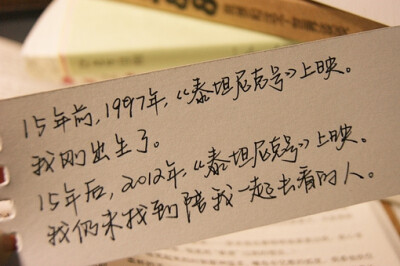 15年前，1997年，《泰坦尼克号》上映。
我刚出生了。
15年后，2012年，《泰坦尼克号》上映。
我仍未找到陪我一起去看的人。